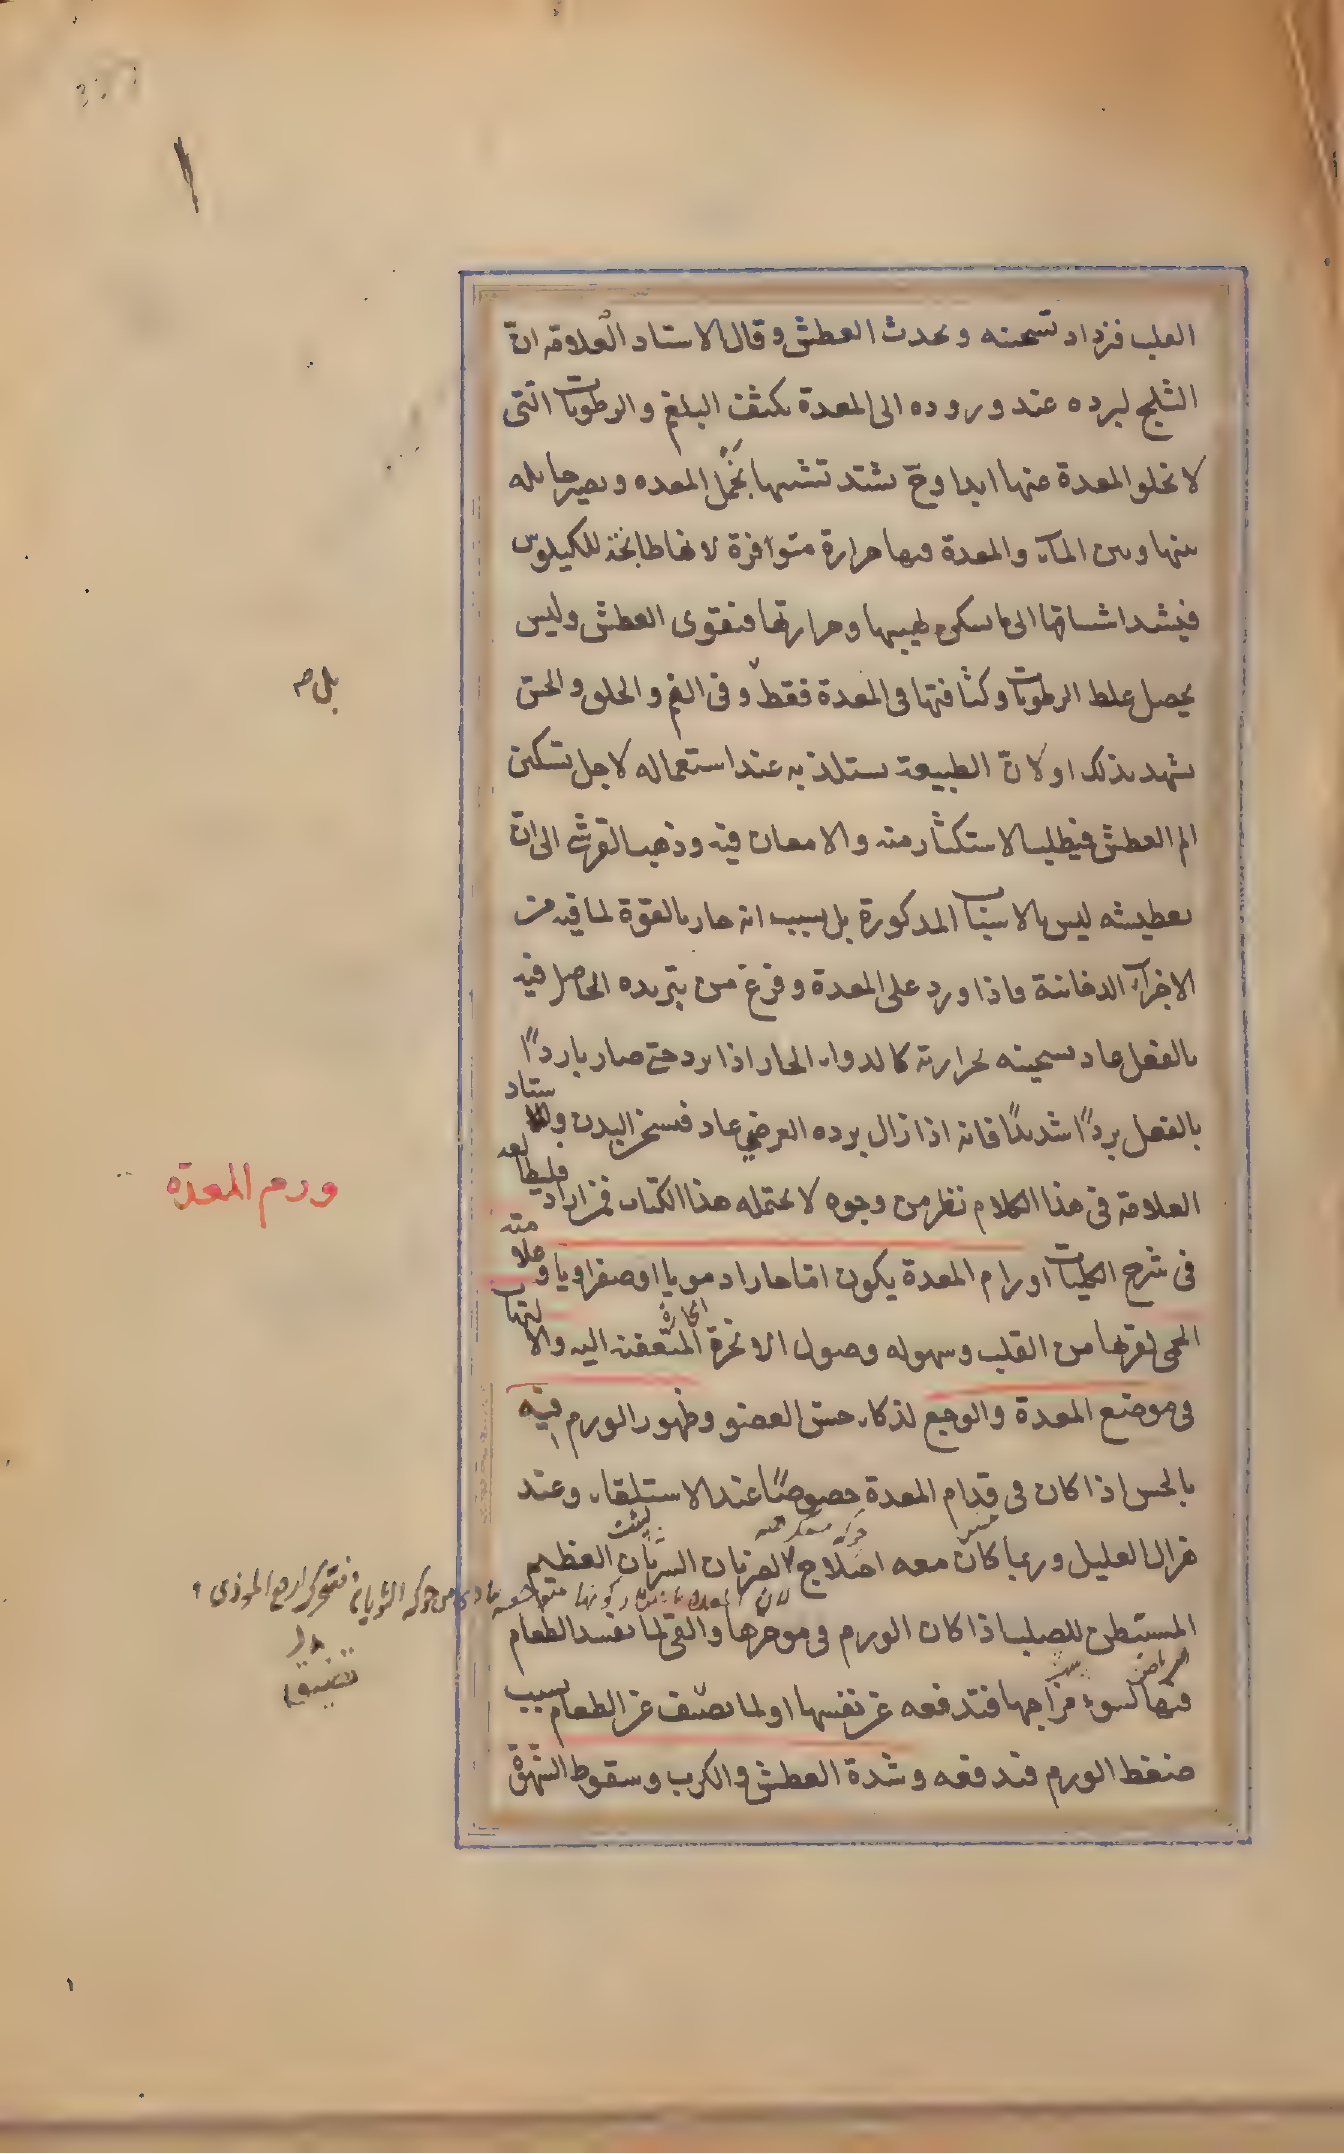 القلب فزداد تسخينه و يحدث العطش و قال الاستاد العلامة انّ
الثلج لبرده عند وروده الى المعدة يكثف البلغم و الرطوبات التى
لا تخلو المعدة منها ابدا و ح يشتد تشبثها بخمل المعده و يصير حايله
بينها و بين الماء و المعدة فيها حرارة متوافرة لانها طابخة للكيلوس
فيشتد اشتياقها الى ما يسكن لهيبها و حرارتها فتقوى العطش و ليس
يحصل غلظ الرطوبات و كثافتها فى المعدة فقط و فى الفم و الحلق و الحس
يشهد بذلك او لانّ الطبيعة يستلذ به عند استعماله لاجل تسكين
الم العطش فيطلب الاستكثار منه و الامعان فيه و ذهب القرشى الى انّ
تعطيشه ليس بالاسباب المذكورة بل بسبب انه حار بالقوة لما فيه من
الاجزاء الدخانية فاذا ورد على المعدة و فرغ من تبريده الحاصل فيه
بالفعل عاد تسخينه بحرارته كالدواء الحار اذا برد حتى صار باردًا
بالفعل بردًا شديدًا فانه اذا زال برده العرضي عاد فسخن البدن و للاستاد
العلامة فى هذا الكلام نظر من وجوه لا يحتمله هذا الكتاب فمن اراد فليطالعه
فى شرح الكليات اورام المعدة يكون امّا حارا دمويا او صفراويا و علامته
الحمى لقربها من القلب و سهوله وصول الابخرة الحارة المتعفنه اليه و الالتهاب
فى موضع المعدة و الوجع لذكاء حسّ العضو و ظهور الورم فيه
بالحس اذا كان فى قدام المعدة خصوصًا عند الاستلقاء و عند
هزال العليل و ربما كان معه اختلاج لضربان الشريان العظيم
المستبطن للصلب اذا كان الورم فى موخرها و القى لما يفسد الطعام
فيها لسوء مزاجها فتدفعه عن نفسها او لما يضيف عن الطعام بسبب
ضغط الورم فتدفعه و شدة العطش و الكرب و سقوط الشهوة
بل صه
ورم المعدة
فتحرك لدفع الموذى
تضيق